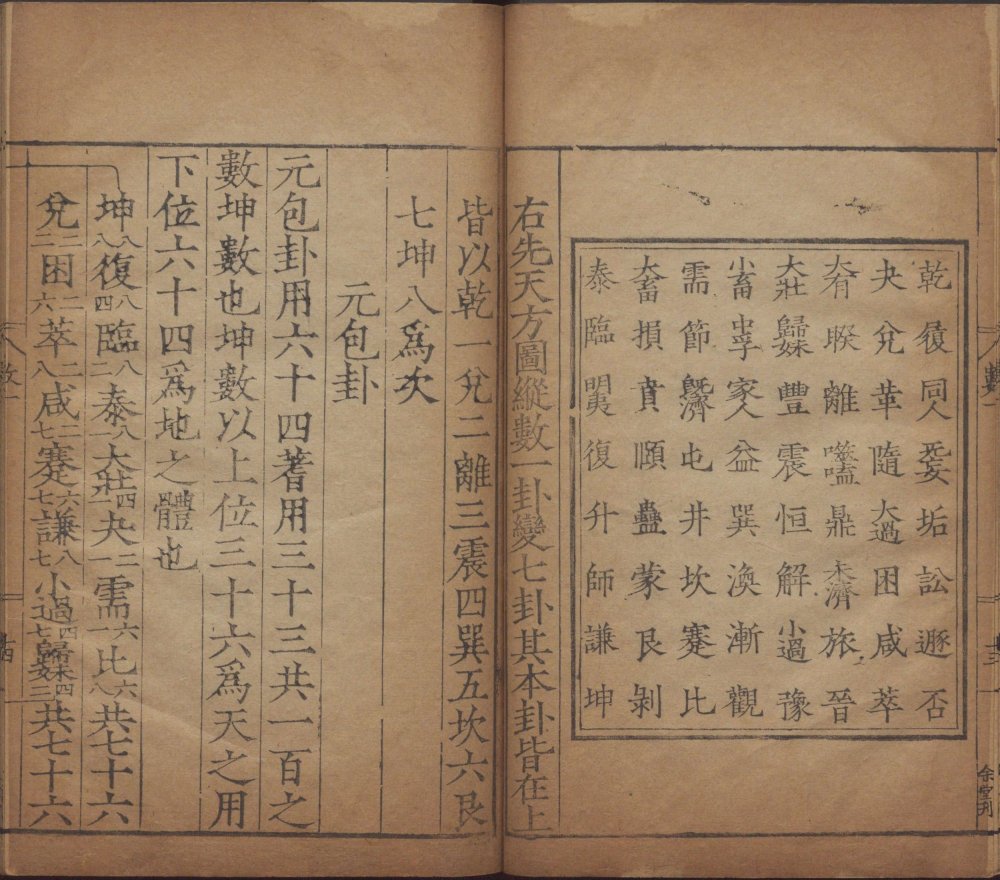 乾履同人无妄姤訟遯否
夬兌革隨大過困咸萃
大有睽離噬嗑鼎未濟旅晉
大壯歸妹豐震恒解小過豫
小畜中孚家人益巽渙漸觀
需節既濟屯井坎蹇比
大畜損賁頤蠱蒙艮剝
泰臨明夷復升師謙坤
右先天方圖縱數一卦變七卦其本卦皆在上
皆以乾一兌二離三震四巽五坎六艮
七坤八爲次
元包卦
元包卦用六十四蓍用三十三共一百之
數坤數也坤數以上位三十六爲天之用
下位六十四爲地之體也
坤八八復八四臨八二泰八一大壯四一夬二一需六一比六八共七十六
兌二二困二六萃二八咸二七蹇六七謙八七小過四七歸妹四三共七十六